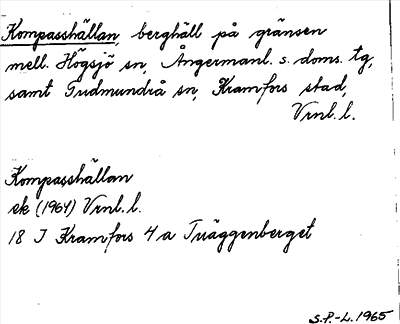 Kompasshällan, berghäll på gränsen
mell. Högsjö sn, Ångermanl. s. doms. tg,
samt Gudmundrå sn, Kramfors stad,
Vrnl. l.
Kompasshällan
ek (1964) Vrnl. l.
18 I Kramfors 4 a Träggenberget
S.P.-L. 1965